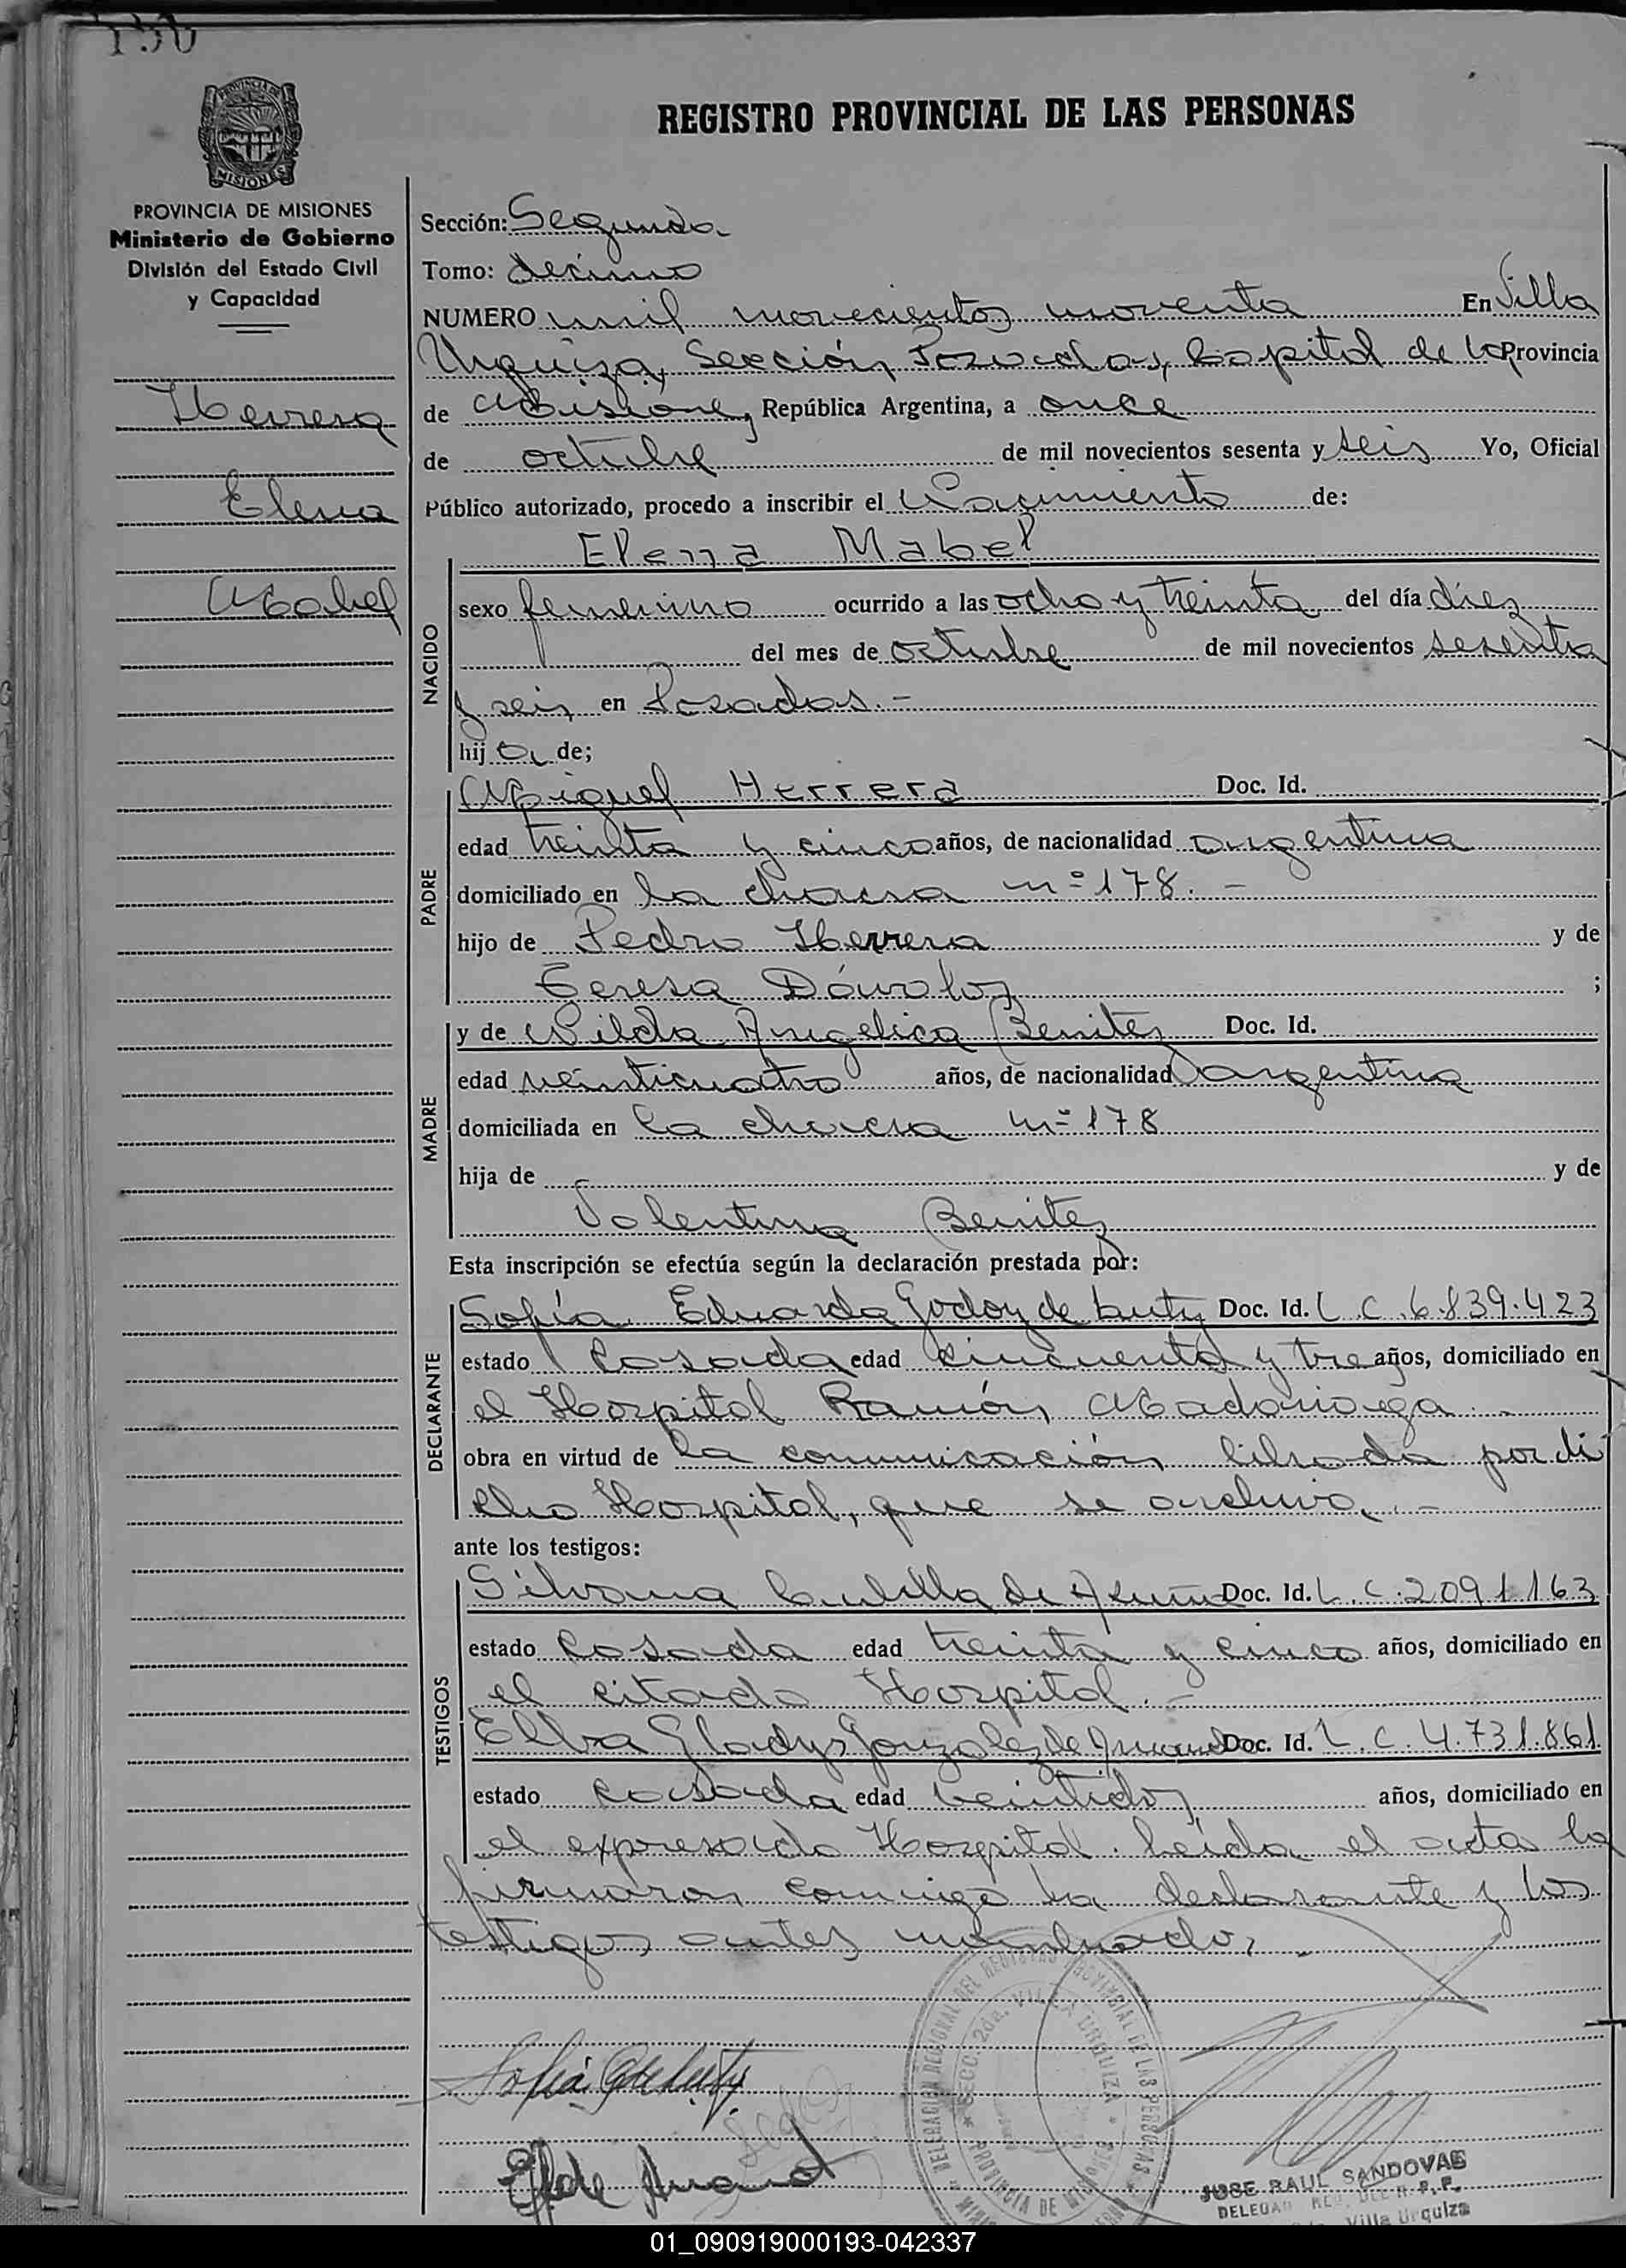 REGISTRO PROVINCIAL DE LAS PERSONAS
PROVINCIA DE MISIONES
Ministerio de Gobierno
División del Estado Civil
y Capacidad
Herrera
Elena
Mabel
Sección: Segunda
Tomo: décimo
NUMERO mil novecientos noventa En Villa
Urquiza, Sección Posadas, Capital de la Provincia
de Misiones, República Argentina, a once
de octubre de mil novecientos sesenta y seis Yo, Oficial
Público autorizado, procedo a inscribir el Nacimiento de:
NACIDO
Elena Mabel
sexo femenino ocurrido a las ocho y treinta del día diez
del mes de octubre de mil novecientos sesenta
y seis en Posadas.-
hij a de;
PADRE
Miguel Herrera Doc. Id.
edad treinta y cinco años, de nacionalidad argentina
domiciliado en la chacra nº 178.-
hijo de Pedro Herrera y de
Teresa Dávalos ;
MADRE
y de Nilda Angelica Benitez Doc. Id.
edad veinticuatro años, de nacionalidad argentina
domiciliada en la chacra nº 178
hija de y de
Valentina Benitez
Esta inscripción se efectúa según la declaración prestada por:
DECLARANTE
Sofía Eduarda Godoy de Doc. Id. L.C. 6.839.423
estado casada edad cincuenta y tres años, domiciliado en
el Hospital Ramón Madariaga.-
obra en virtud de la comunicación librada por di
cho Hospital, que se archiva.-
ante los testigos:
TESTIGOS
Silvana de Doc. Id. L.C. 2091163
estado casada edad treinta y cinco años, domiciliado en
el citado Hospital.-
Elba Gladys Gonzalez de Doc. Id. L.C. 4.731.861
estado casada edad veintidos años, domiciliado en
el expresado Hospital. Leída el acta la
firmaron conmigo la declarante y los
testigos antes nombrados.-
DELEGACION REGIONAL DEL REGISTRO PROVINCIAL DE LAS PERSONAS
SECC. 2da. VILLA URQUIZA
PROVINCIA DE
JOSE RAUL SANDOVAL
DELEGADO REG. DEL R. P. P.
Villa Urquiza
01_090919000193-042337